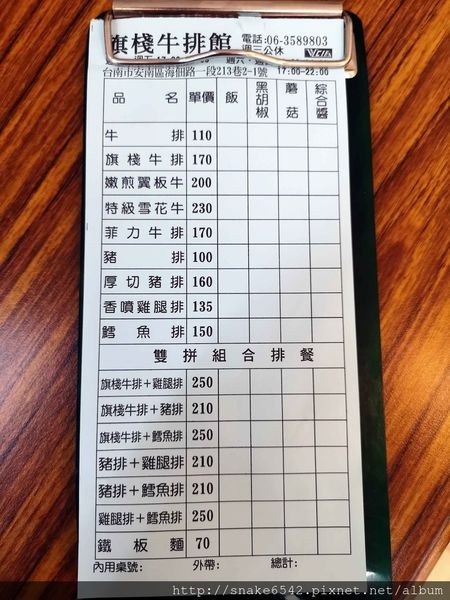 旗棧牛排館 電話:06-3589803
週三公休
台南市安南區海佃路一段213巷2-1號 17:00-22:00
品名 單價 飯 黑胡椒 蘑菇 綜合醬
牛排 110
旗棧牛排 170
嫩煎翼板牛 200
特級雪花牛 230
菲力牛排 170
豬排 100
厚切豬排 160
香噴雞腿排 135
鱈魚排 150
雙拼組合排餐
旗棧牛排+雞腿排 250
旗棧牛排+豬排 210
旗棧牛排+鱈魚排 250
豬排+雞腿排 210
豬排+鱈魚排 210
雞腿排+鱈魚排 250
鐵板麵 70
內用桌號: 外帶: 總計:
http://snake6542.pixnet.net/album